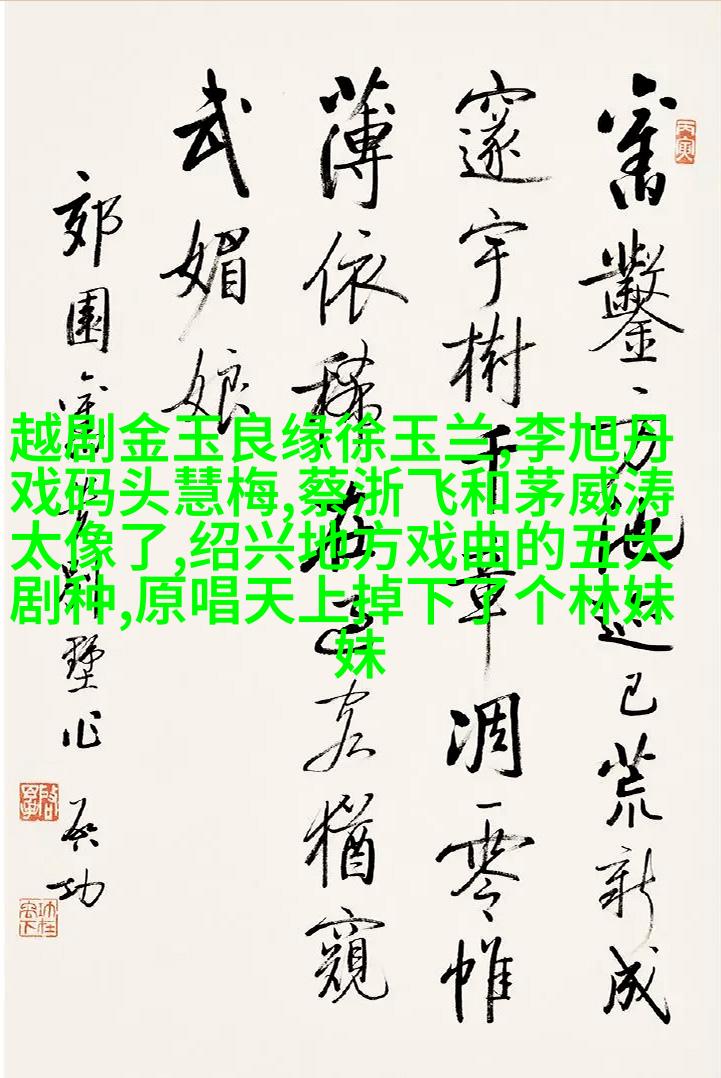 越剧金玉良缘徐玉兰,李旭丹
戏码头慧梅,蔡浙飞和茅威涛
太像了,绍兴地方戏曲的五大
剧种,原唱天上掉下了个林妹
妹
丙寅
舊鑿方池迹已荒新成
邃宇樹千章凋零帷
薄依稀過客猶窺
武媚娘
郊園舊墅作 啟功